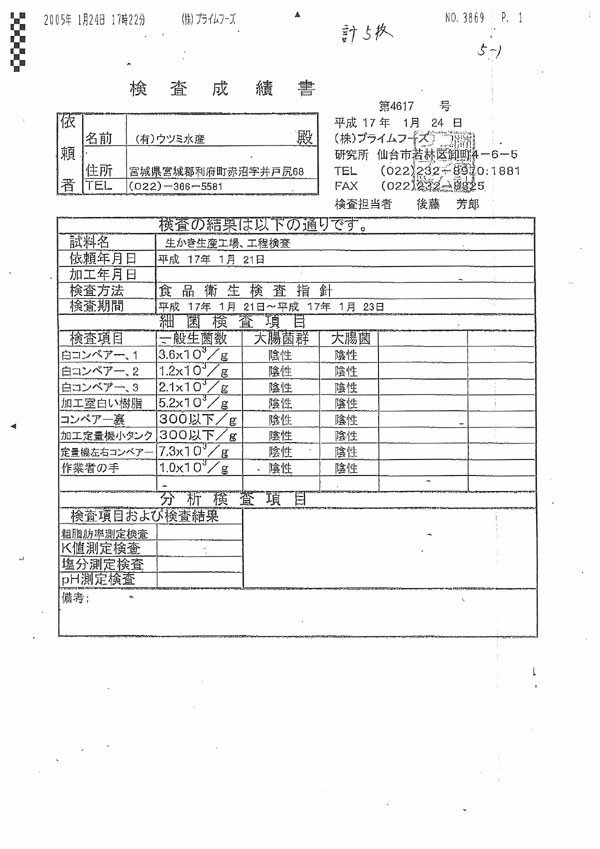 2005年 1月24日 17時22分 (株)プライムフーズ NO. 3869 P. 1
計5枚
5-1
検査成績書
第4617 号
平成 17年 1月 24 日
依頼者
名前 (有)ウツミ水産 殿
住所 宮城県宮城郡利府町赤沼字井戸尻68
TEL (022)-366-5581
(株)プライムフーズ
研究所 仙台市若林区卸町4-6-5
TEL (022)232-8970:1881
FAX (022)232-8825
検査担当者 後藤 芳郎
検査の結果は以下の通りです。
試料名 生かき生産工場、工程検査
依頼年月日 平成 17年 1月 21日
加工年月日
検査方法 食品衛生検査指針
検査期間 平成 17年 1月 21日~平成 17年 1月 23日
細菌検査項目
検査項目 一般生菌数 大腸菌群 大腸菌
白コンベアー、1 3.6x10³/g 陰性 陰性
白コンベアー、2 1.2x10³/g 陰性 陰性
白コンベアー、3 2.1x10³/g 陰性 陰性
加工室白い樹脂 5.2x10³/g 陰性 陰性
コンベアー裏 300以下/g 陰性 陰性
加工定量機小タンク 300以下/g 陰性 陰性
定量機左右コンベアー 7.3x10³/g 陰性 陰性
作業者の手 1.0x10³/g 陰性 陰性
分析検査項目
検査項目および検査結果
粗脂肪率測定検査
K値測定検査
塩分測定検査
pH測定検査
備考;